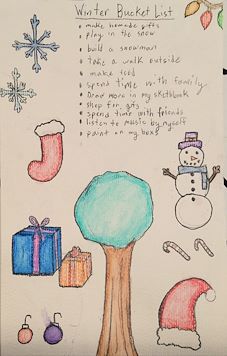 Winter Bucket List
• make homade gifts
• play in the snow
• build a snowman
• take a walk outside
• make food
• spend time with family
• Draw more in my sketchbook
• shop for gifts
• spend time with friends
• listen to music by myself
• paint on my boxs